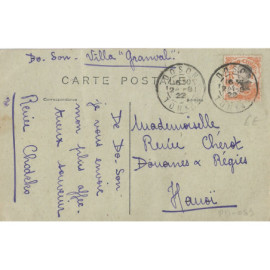 Do. Son. Villa "Granval".
CARTE POSTALE
Correspondance
De Do. Son
je vous envoie
mon plus affec-
tueux souvenir
Renée Chodzko
Mademoiselle
Renée Cherot
Douanes & Régies
Hanoï